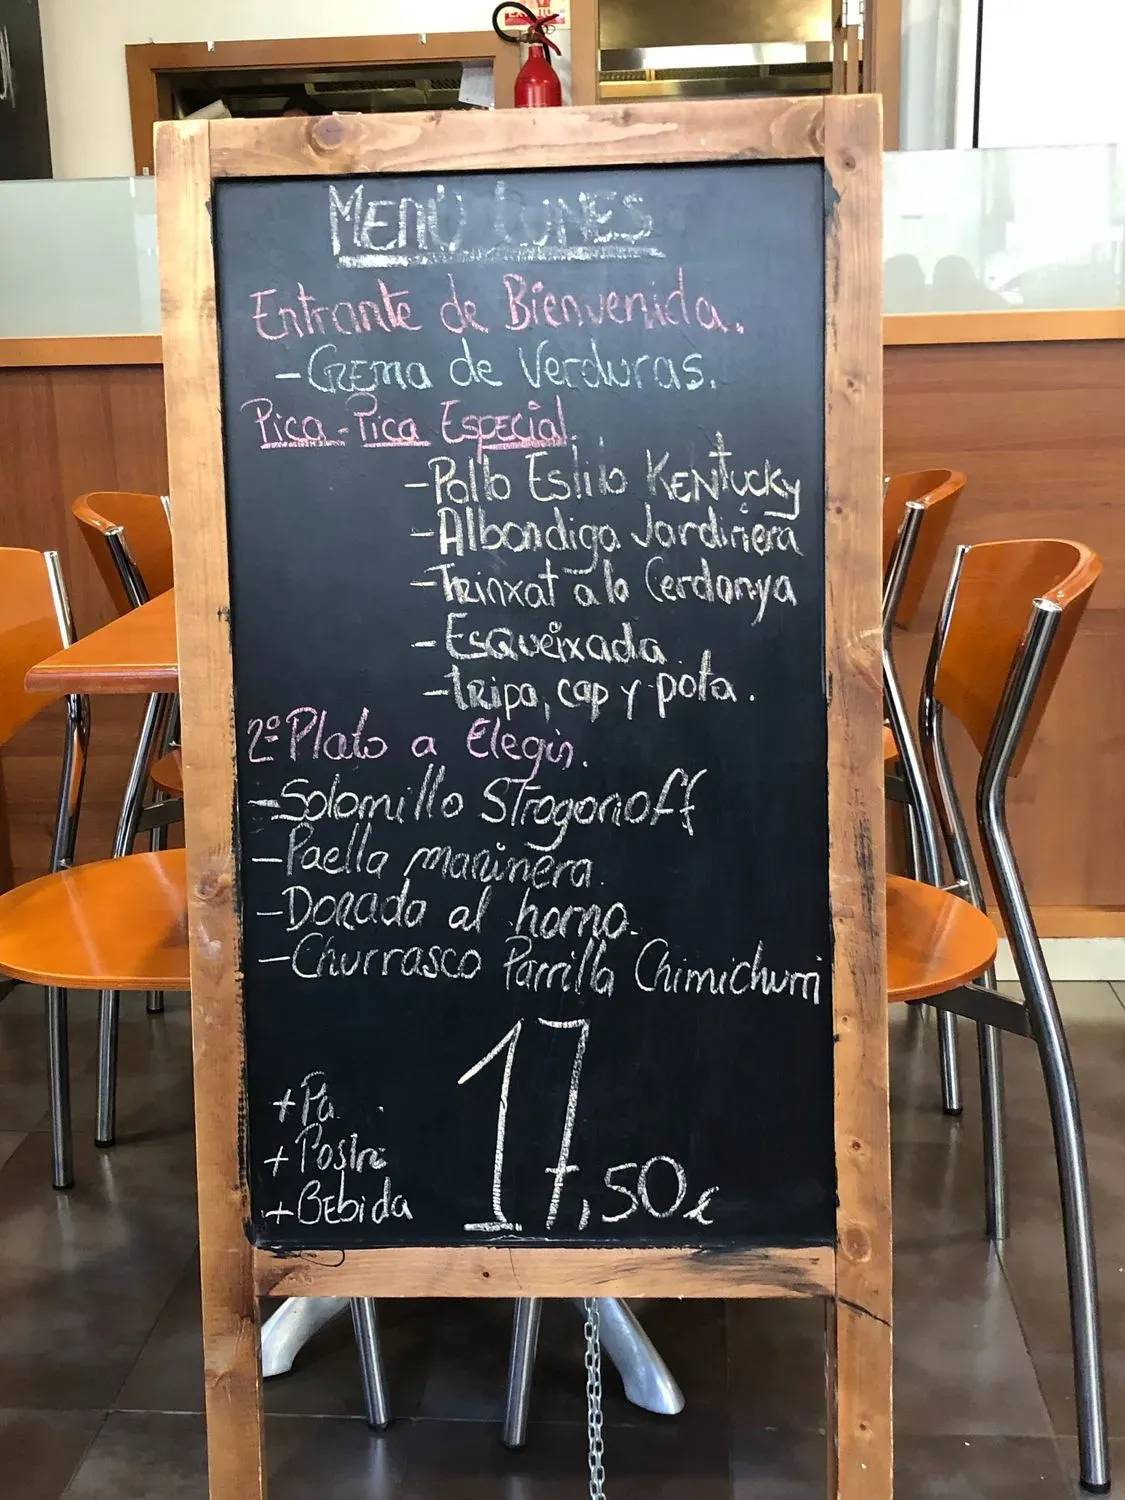 MENÚ LUNES
Entrante de Bienvenida.
-Crema de Verduras.
Pica-Pica Especial.
-Pollo Estilo KENtucky
-Albondiga Jardinera
-Trinxat a la Cerdanya
-Esqueixada
-tripa, cap y pota.
2º Plato a Elegir.
-Solomillo Strogonoff
-Paella marinera.
-Dorada al horno.
-Churrasco Parrilla Chimichurri
+Pa
+Postre
+Bebida
17,50€